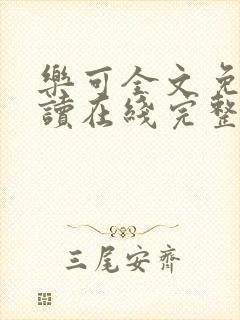 樂可全文免
讀在綫完整
三尾安齊